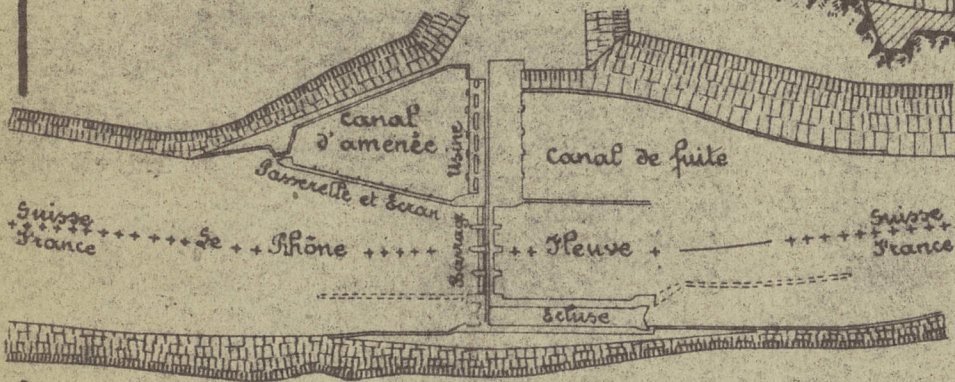 Canal
d'amenée
Usine
Canal de fuite
Passerelle et Écran
Suisse
France
Le Rhône
Barrage
Fleuve
Suisse
France
Écluse